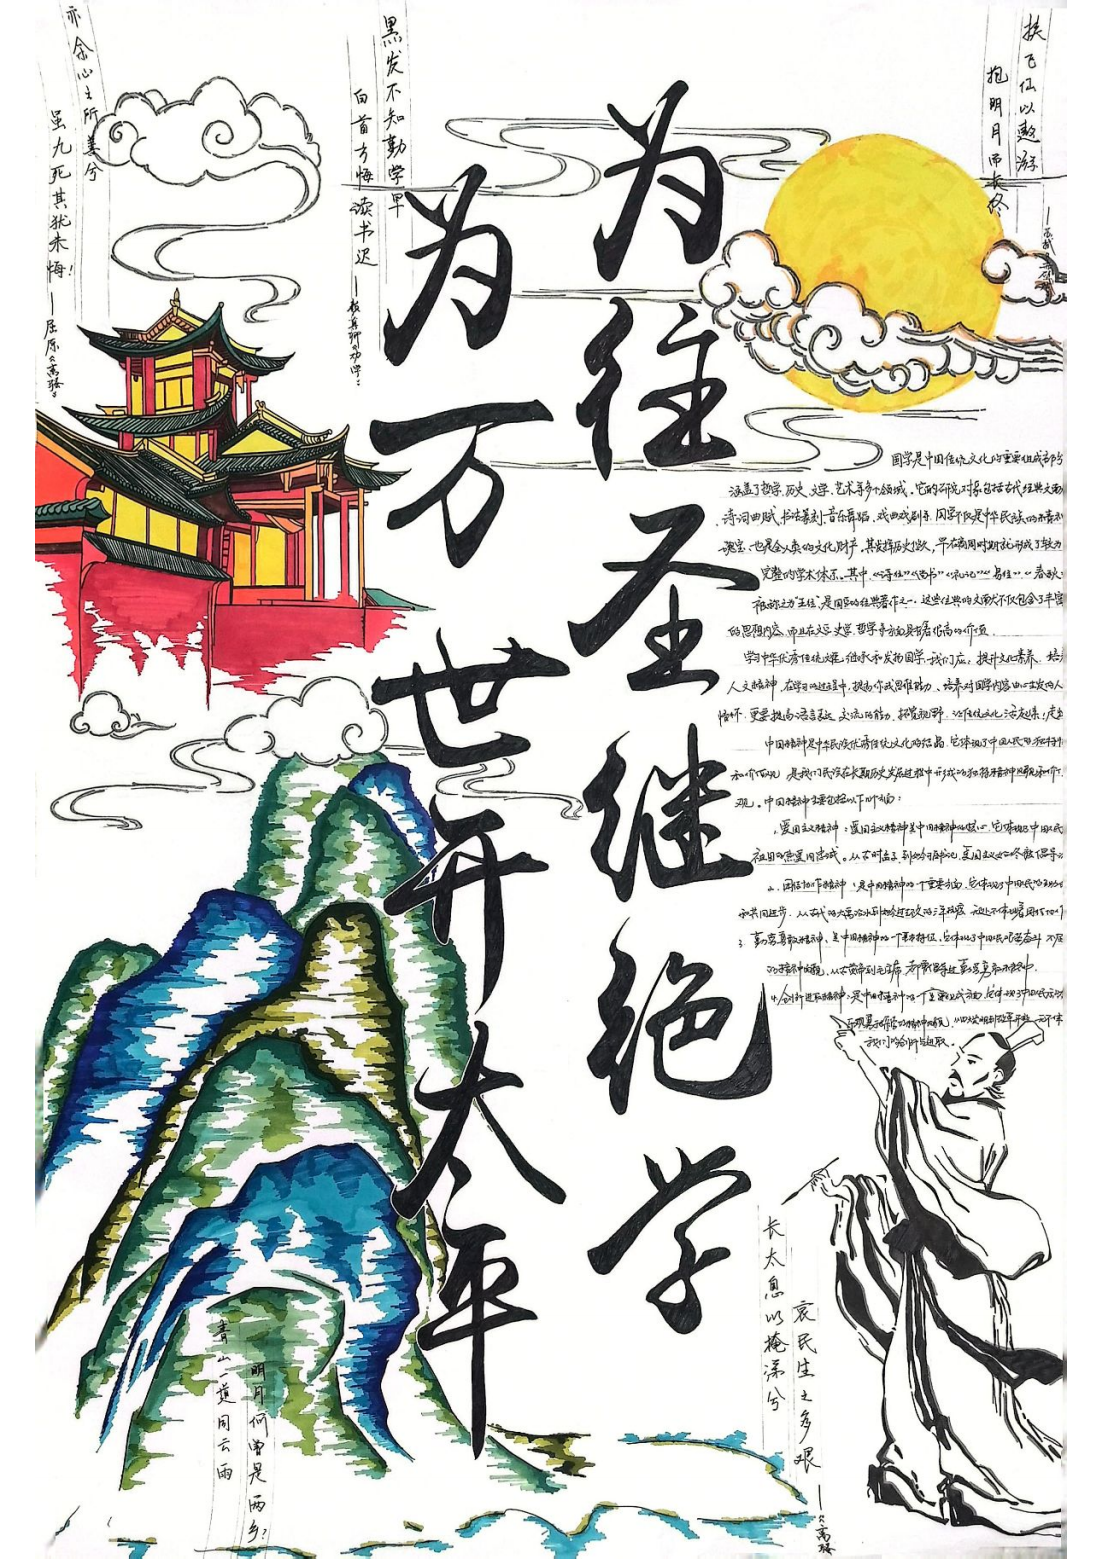 为往圣继绝学
为万世开太平
挟飞仙以遨游
抱明月而长终
黑发不知勤学早
白首方悔读书迟
——颜真卿《劝学》
亦余心之所善兮
虽九死其犹未悔！
——屈原《离骚》
国学是中国传统文化的重要组成部分
涵盖了哲学、历史、文学、艺术等多个领域。它的研究对象包括古代经典文献
、诗词曲赋、书法篆刻、音乐舞蹈、戏曲戏剧等。国学不仅是中华民族的精神
瑰宝，也是全人类的文化财产。其发挥历史悠久，早在商周时期就形成了较为
完整的学术体系。其中，《诗经》《尚书》《礼记》《易经》《春秋》
被称之为“五经”是国学的经典著作之一。这些经典的文献不仅包含了丰富
的思想内容，而且在文学、史学、哲学等方面具有着很高的价值。
学习中华优秀传统文化，继承和发扬国学，我们应：提升文化素养，培养
人文精神，在学习的过程中，提高你我思维能力、培养对国学内容由心生发的人
情怀，更要提高语言表达、交流的能力，拓宽视野，让传统文化活起来！
中国精神是中华民族优秀传统文化的结晶，它体现了中国人民的独特精神
和价值观，是我们民族在长期历史发展过程中形成的独特精神
观。中国精神主要包括以下几个方面：
1. 爱国主义精神：爱国主义精神是中国精神的核心，它体现了中国人民
祖国的热爱和忠诚。
2. 团结协作精神：是中国精神的一个重要方面，它体现了中国人民的
和共同进步。
3. 勤劳勇敢精神，是中国精神的一个基本特征，它体现了中国人民艰苦奋斗、不屈
4. 创新进取精神：是中国精神的一个重要组成方面，它体现了中国人民
长太息以掩涕兮
哀民生之多艰
——《离骚》
青山一道同云雨
明月何曾是两乡？